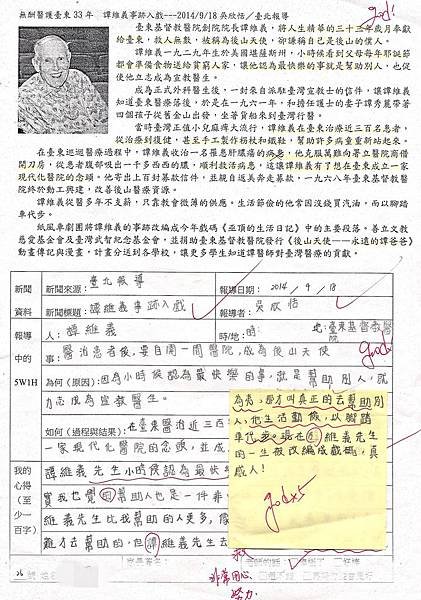 無酬醫護臺東33年 譚維義事跡入戲---2014/9/18吳欣恬／臺北報導
god!
臺東基督教醫院創院院長譚維義，將人生精華的三十三年歲月奉獻
給臺東，救人無數，被稱為後山天使，卻謙稱自己是後山的僕人。
譚維義一九二九年生於美國堪薩斯州，小時候看到父母每年耶誕節
都會準備食物送給貧窮人家，讓他認為最快樂的事就是幫助別人，也促
使他立志成為宣教醫生。
成為正式外科醫生後，一封來自派駐臺灣宣教士的信件，讓譚維義
知道臺東醫療落後，於是在一九六一年，和擔任護士的妻子譚秀麗帶著
四個孩子從舊金山出發，坐著貨船來到臺灣行醫。
當時臺灣正值小兒麻痺大流行，譚維義在臺東治療近三百名患者，
從治療到復健，甚至手工製作枴杖和鐵鞋，幫助許多病童重新站起來。
在臺東巡迴醫療過程中，譚維義收治一名罹患肝膿瘍的病患，他克服萬難向署立醫院商借
開刀房，從患者腹部吸出一千多西西的膿，順利救活病患，這讓譚維義有了想在臺東成立一家
現代化醫院的念頭。他寄出上百封募款信件，並親自返美奔走募款，一九六八年臺東基督教醫
院終於動工興建，改善後山醫療資源。
譚維義從醫多年不支薪，只靠教會微薄的供應。生活節儉的他常因沒錢買汽油，而以腳踏
車代步。
紙風車劇團將譚維義的事跡改編成今年戲碼《巫頂的生活日記》中的主要段落。善立文教
慈愛基金會及臺灣武智紀念基金會，並捐助臺東基督教醫院發行《後山天使──永遠的譚爸爸》
動畫傳記與漫畫，計畫分送到各學校，讓更多學生知道譚醫師對臺灣醫療的貢獻。
新聞
資料
新聞來源：臺北報導
報導日期：2014/9/18
新聞標題：譚維義事跡入戲
報導者：吳欣恬
報導
中的
5W1H
人：譚維義
時/地：時：
地：臺東基督教醫院
事：醫治患者後，要自開一間醫院，成為後山天使
god!
為何（原因）：因為小時候認為最快樂的事，就是幫助別人，就
立志成為宣教醫生。
如何（過程與結果）：在臺東醫治近三百
一家現代化醫院的念頭，並成
我的
心得
（至
少一
百字）
譚維義先生小時候認為最快樂
實我也覺的幫助人也是一件非
維義先生比我幫助的人更多，
難才去幫助的，但譚維義先生去
為老，那才叫真正的去幫助別
人，他生活勤儉，以腳踏
車代步。現在譚維義先生
的一生被改編成戲碼，真
感人！
god×5
26
號
非常用心
努力